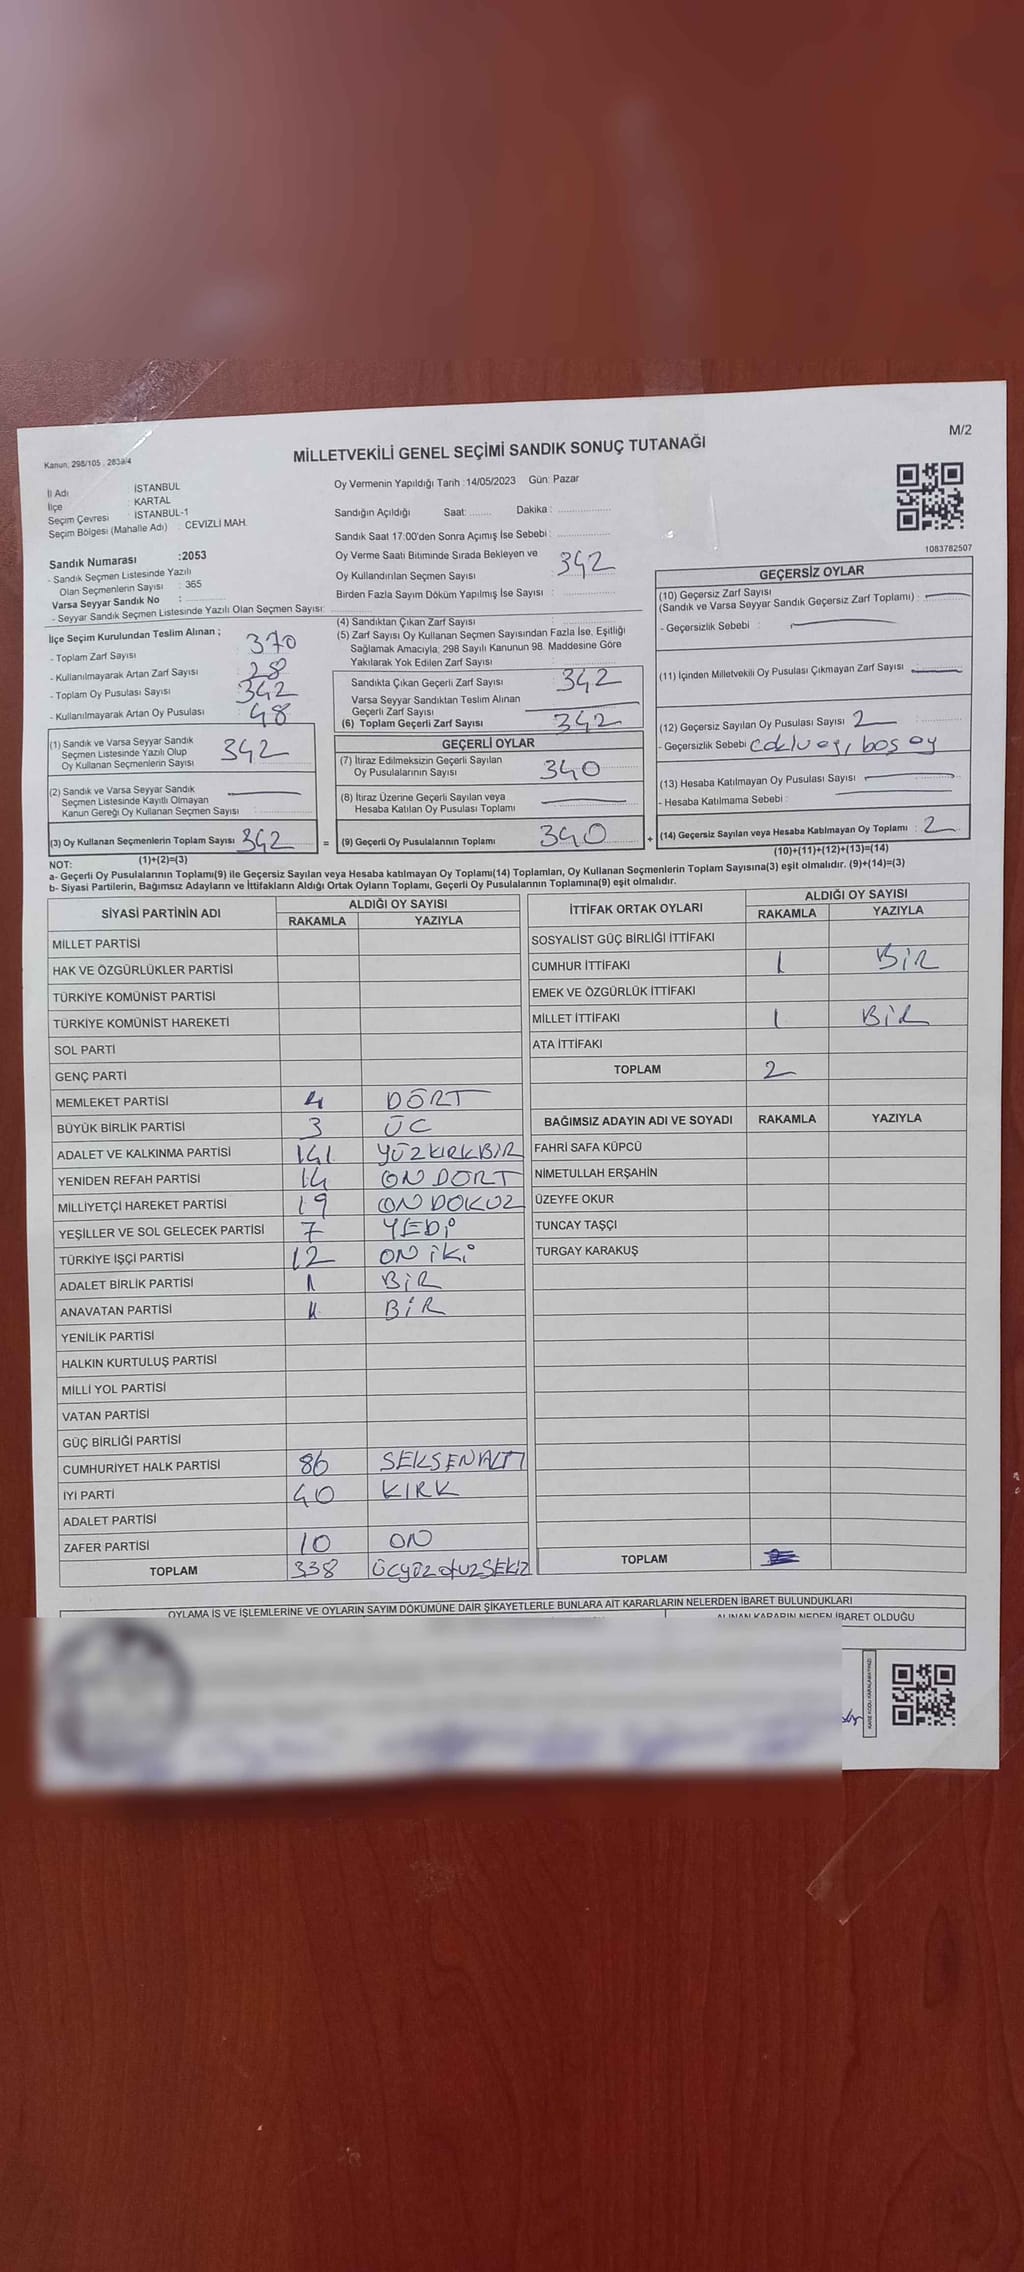 M/2
MİLLETVEKİLİ GENEL SEÇİMİ SANDIK SONUÇ TUTANAĞI
Kanun, 298/105 , 2839/4
İl Adı : İSTANBUL
İlçe : KARTAL
Seçim Çevresi : İSTANBUL-1
Seçim Bölgesi (Mahalle Adı) : CEVİZLİ MAH.
Sandık Numarası :2053
- Sandık Seçmen Listesinde Yazılı
Olan Seçmenlerin Sayısı : 365
Varsa Seyyar Sandık No :
- Seyyar Sandık Seçmen Listesinde Yazılı Olan Seçmen Sayısı:
Oy Vermenin Yapıldığı Tarih :14/05/2023 Gün: Pazar
Sandığın Açıldığı Saat: Dakika :
Sandık Saat 17:00'den Sonra Açımış İse Sebebi :
Oy Verme Saati Bitiminde Sırada Bekleyen ve
Oy Kullandırılan Seçmen Sayısı : 342
Birden Fazla Sayım Döküm Yapılmış İse Sayısı :
1083782507
İlçe Seçim Kurulundan Teslim Alınan ;
- Toplam Zarf Sayısı : 370
- Kullanılmayarak Artan Zarf Sayısı : 28
- Toplam Oy Pusulası Sayısı : 342
- Kullanılmayarak Artan Oy Pusulası : 48
(1) Sandık ve Varsa Seyyar Sandık
Seçmen Listesinde Yazılı Olup
Oy Kullanan Seçmenlerin Sayısı : 342
(2) Sandık ve Varsa Seyyar Sandık
Seçmen Listesinde Kayıtlı Olmayan
Kanun Gereği Oy Kullanan Seçmen Sayısı :
(3) Oy Kullanan Seçmenlerin Toplam Sayısı : 342
(1)+(2)=(3)
(4) Sandıktan Çıkan Zarf Sayısı :
(5) Zarf Sayısı Oy Kullanan Seçmen Sayısından Fazla İse, Eşitliği
Sağlamak Amacıyla, 298 Sayılı Kanunun 98. Maddesine Göre
Yakılarak Yok Edilen Zarf Sayısı :
Sandıkta Çıkan Geçerli Zarf Sayısı : 342
Varsa Seyyar Sandıktan Teslim Alınan
Geçerli Zarf Sayısı :
(6) Toplam Geçerli Zarf Sayısı : 342
GEÇERLİ OYLAR
(7) İtiraz Edilmeksizin Geçerli Sayılan
Oy Pusulalarının Sayısı : 340
(8) İtiraz Üzerine Geçerli Sayılan veya
Hesaba Katılan Oy Pusulası Toplamı :
= (9) Geçerli Oy Pusulalarının Toplamı : 340 +
GEÇERSİZ OYLAR
(10) Geçersiz Zarf Sayısı
(Sandık ve Varsa Seyyar Sandık Geçersiz Zarf Toplamı) :
- Geçersizlik Sebebi :
(11) İçinden Milletvekili Oy Pusulası Çıkmayan Zarf Sayısı :
(12) Geçersiz Sayılan Oy Pusulası Sayısı : 2
- Geçersizlik Sebebi : boş oy
(13) Hesaba Katılmayan Oy Pusulası Sayısı :
- Hesaba Katılmama Sebebi :
(14) Geçersiz Sayılan veya Hesaba Katılmayan Oy Toplamı : 2
(10)+(11)+(12)+(13)=(14)
NOT:
a- Geçerli Oy Pusulalarının Toplamı(9) ile Geçersiz Sayılan veya Hesaba katılmayan Oy Toplamı(14) Toplamları, Oy Kullanan Seçmenlerin Toplam Sayısına(3) eşit olmalıdır. (9)+(14)=(3)
b- Siyasi Partilerin, Bağımsız Adayların ve İttifakların Aldığı Ortak Oyların Toplamı, Geçerli Oy Pusulalarının Toplamına(9) eşit olmalıdır.
SİYASİ PARTİNİN ADI ALDIĞI OY SAYISI
RAKAMLA YAZIYLA
MİLLET PARTİSİ
HAK VE ÖZGÜRLÜKLER PARTİSİ
TÜRKİYE KOMÜNİST PARTİSİ
TÜRKİYE KOMÜNİST HAREKETİ
SOL PARTİ
GENÇ PARTİ
MEMLEKET PARTİSİ 4 DÖRT
BÜYÜK BİRLİK PARTİSİ 3 ÜÇ
ADALET VE KALKINMA PARTİSİ 141 YÜZKIRKBİR
YENİDEN REFAH PARTİSİ 14 ONDÖRT
MİLLİYETÇİ HAREKET PARTİSİ 19 ONDOKUZ
YEŞİLLER VE SOL GELECEK PARTİSİ 7 YEDİ
TÜRKİYE İŞÇİ PARTİSİ 12 ON İKİ
ADALET BİRLİK PARTİSİ 1 BİR
ANAVATAN PARTİSİ 1 BİR
YENİLİK PARTİSİ
HALKIN KURTULUŞ PARTİSİ
MİLLİ YOL PARTİSİ
VATAN PARTİSİ
GÜÇ BİRLİĞİ PARTİSİ
CUMHURİYET HALK PARTİSİ 86 SEKSENALTI
İYİ PARTİ 40 KIRK
ADALET PARTİSİ
ZAFER PARTİSİ 10 ON
TOPLAM 338 ÜÇYÜZ OTUZSEKİZ
İTTİFAK ORTAK OYLARI ALDIĞI OY SAYISI
RAKAMLA YAZIYLA
SOSYALİST GÜÇ BİRLİĞİ İTTİFAKI
CUMHUR İTTİFAKI 1 BİR
EMEK VE ÖZGÜRLÜK İTTİFAKI
MİLLET İTTİFAKI 1 BİR
ATA İTTİFAKI
TOPLAM 2
BAĞIMSIZ ADAYIN ADI VE SOYADI RAKAMLA YAZIYLA
FAHRİ SAFA KÜPCÜ
NİMETULLAH ERŞAHİN
ÜZEYFE OKUR
TUNCAY TAŞÇI
TURGAY KARAKUŞ
TOPLAM
OYLAMA İŞ VE İŞLEMLERİNE VE OYLARIN SAYIM DÖKÜMÜNE DAİR ŞİKAYETLERLE BUNLARA AİT KARARLARIN NELERDEN İBARET BULUNDUKLARI
ALINAN KARARIN NEDEN İBARET OLDUĞU